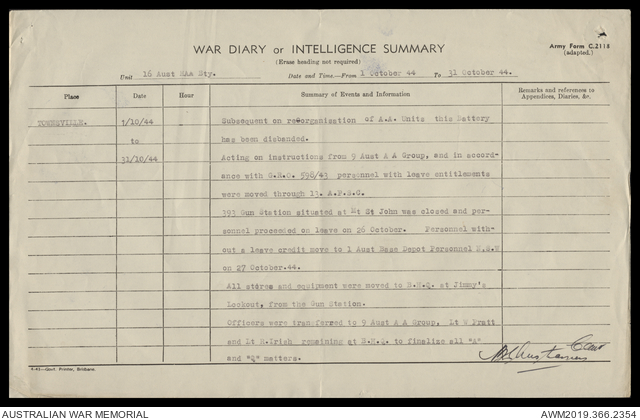 WAR DIARY or INTELLIGENCE SUMMARY
Army Form C.2118
(adapted.)
(Erase heading not required)
Unit 16 Aust HAA Bty. Date and Time.—From 1 October 44 To 31 October 44.
Place Date Hour Summary of Events and Information Remarks and references to Appendices, Diaries, &c.
TOWNSVILLE. 1/10/44 Subsequent on reorganisation of A.A. Units this Battery
to has been disbanded.
31/10/44 Acting on instructions from 9 Aust A A Group, and in accord-
ance with G.R.O. 598/43 personnel with leave entitlements
were moved through 13.
393 Gun Station situated at Mt St John was closed and per-
sonnel proceeded on leave on 26 October. Personnel with-
out a leave credit move to 1 Aust Base Depot Personnel
on 27 October.44.
All stores and equipment were moved to B.H.Q. at Jimmy's
Lookout, from the Gun Station.
Officers were transferred to 9 Aust A A Group, Lt W Pratt
and Lt R.Irish remaining at B.H.Q. to finalize all "A"
and "Q" matters.
Capt
Govt. Printer, Brisbane.
AUSTRALIAN WAR MEMORIAL
AWM2019.366.2354